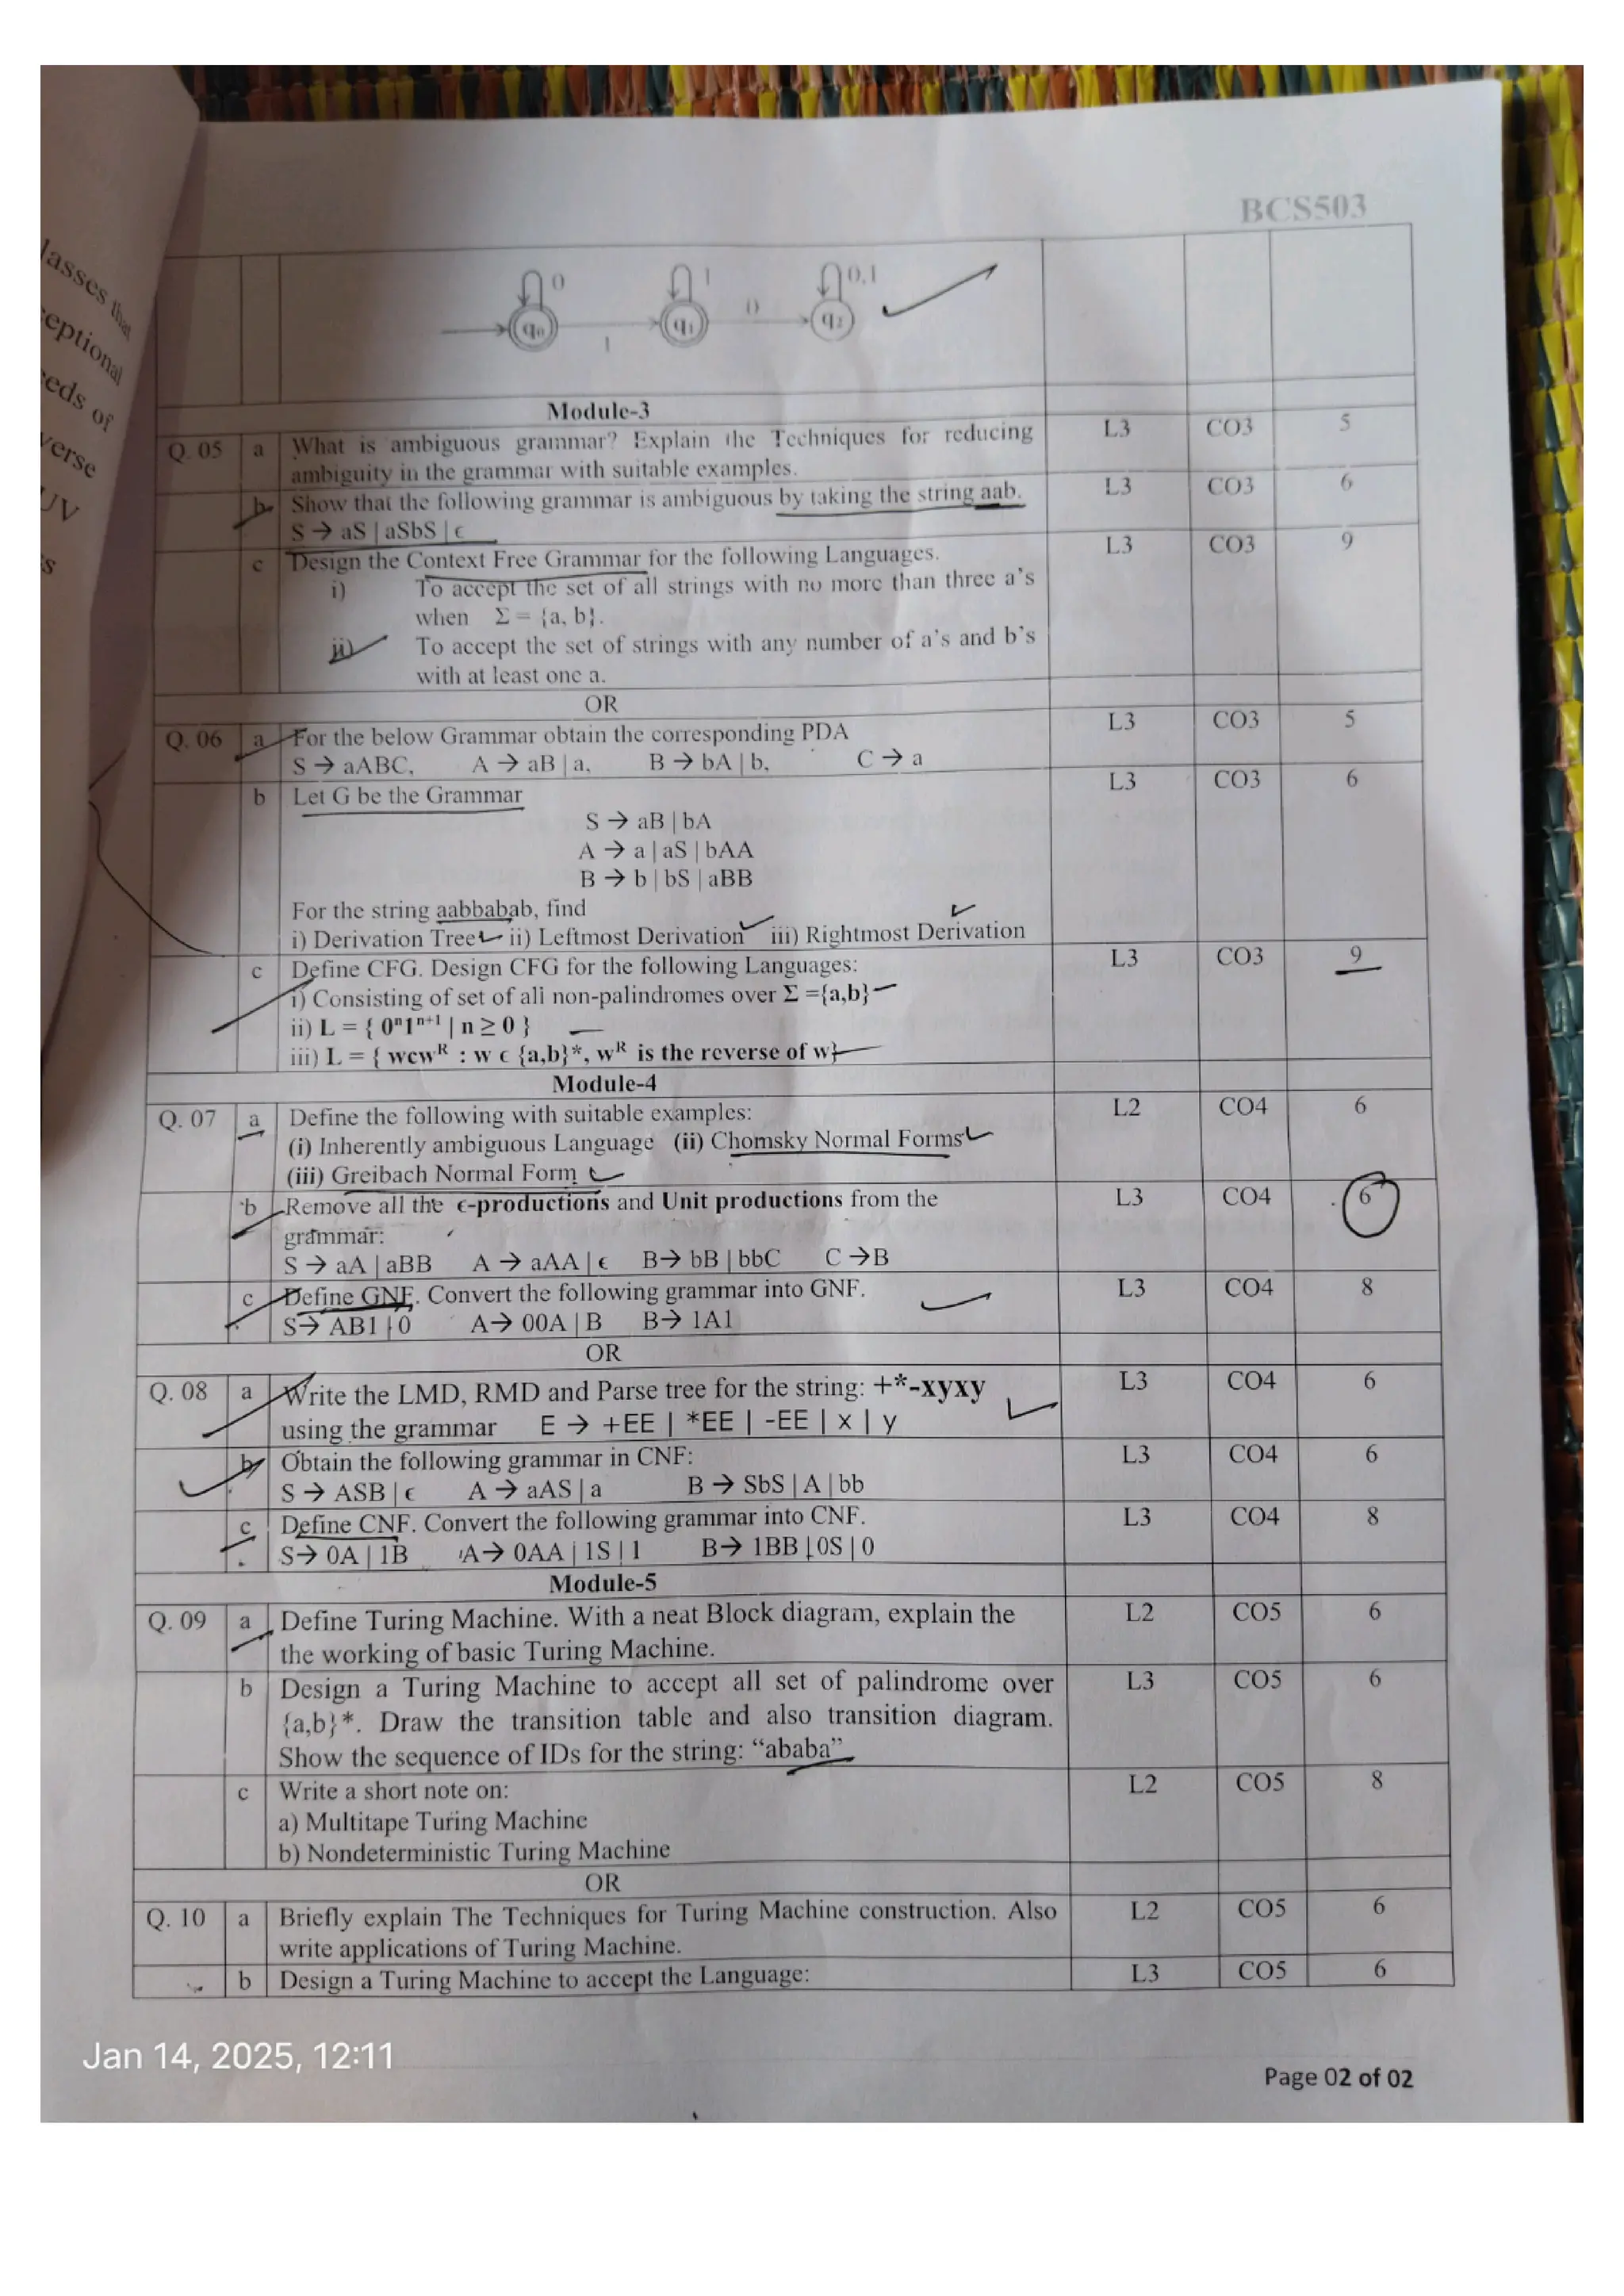 BCS503
lasses that
eptional
eds of
verse
UV
s
0 1 0,1
q₀ q₁ 0 q₂
1
Module-3
Q. 05 a What is ambiguous grammar? Explain the Techniques for reducing L3 CO3 5
ambiguity in the grammar with suitable examples.
b Show that the following grammar is ambiguous by taking the string aab. L3 CO3 6
S → aS | aSbS | ϵ
c Design the Context Free Grammar for the following Languages. L3 CO3 9
i) To accept the set of all strings with no more than three a's
when Σ = {a, b}.
ii) To accept the set of strings with any number of a's and b's
with at least one a.
OR
Q. 06 a For the below Grammar obtain the corresponding PDA L3 CO3 5
S → aABC, A → aB | a, B → bA | b, C → a
b Let G be the Grammar L3 CO3 6
S → aB | bA
A → a | aS | bAA
B → b | bS | aBB
For the string aabbabab, find
i) Derivation Tree ii) Leftmost Derivation iii) Rightmost Derivation
c Define CFG. Design CFG for the following Languages: L3 CO3 9
i) Consisting of set of all non-palindromes over Σ ={a,b}
ii) L = { 0ⁿ1ⁿ⁺¹ | n ≥ 0 }
iii) L = { wcwᴿ : w ϵ {a,b}*, wᴿ is the reverse of w}
Module-4
Q. 07 a Define the following with suitable examples: L2 CO4 6
(i) Inherently ambiguous Language (ii) Chomsky Normal Forms
(iii) Greibach Normal Form
b Remove all the ϵ-productions and Unit productions from the L3 CO4 6
grammar:
S → aA | aBB A → aAA | ϵ B→ bB | bbC C →B
c Define GNF. Convert the following grammar into GNF. L3 CO4 8
S→ AB1 | 0 A→ 00A | B B→ 1A1
OR
Q. 08 a Write the LMD, RMD and Parse tree for the string: +*-xyxy L3 CO4 6
using the grammar E → +EE | *EE | -EE | x | y
b Obtain the following grammar in CNF: L3 CO4 6
S → ASB | ϵ A → aAS | a B → SbS | A | bb
c Define CNF. Convert the following grammar into CNF. L3 CO4 8
S→ 0A | 1B A→ 0AA | 1S | 1 B→ 1BB | 0S | 0
Module-5
Q. 09 a Define Turing Machine. With a neat Block diagram, explain the L2 CO5 6
the working of basic Turing Machine.
b Design a Turing Machine to accept all set of palindrome over L3 CO5 6
{a,b}*. Draw the transition table and also transition diagram.
Show the sequence of IDs for the string: “ababa”
c Write a short note on: L2 CO5 8
a) Multitape Turing Machine
b) Nondeterministic Turing Machine
OR
Q. 10 a Briefly explain The Techniques for Turing Machine construction. Also L2 CO5 6
write applications of Turing Machine.
b Design a Turing Machine to accept the Language: L3 CO5 6
Jan 14, 2025, 12:11
Page 02 of 02